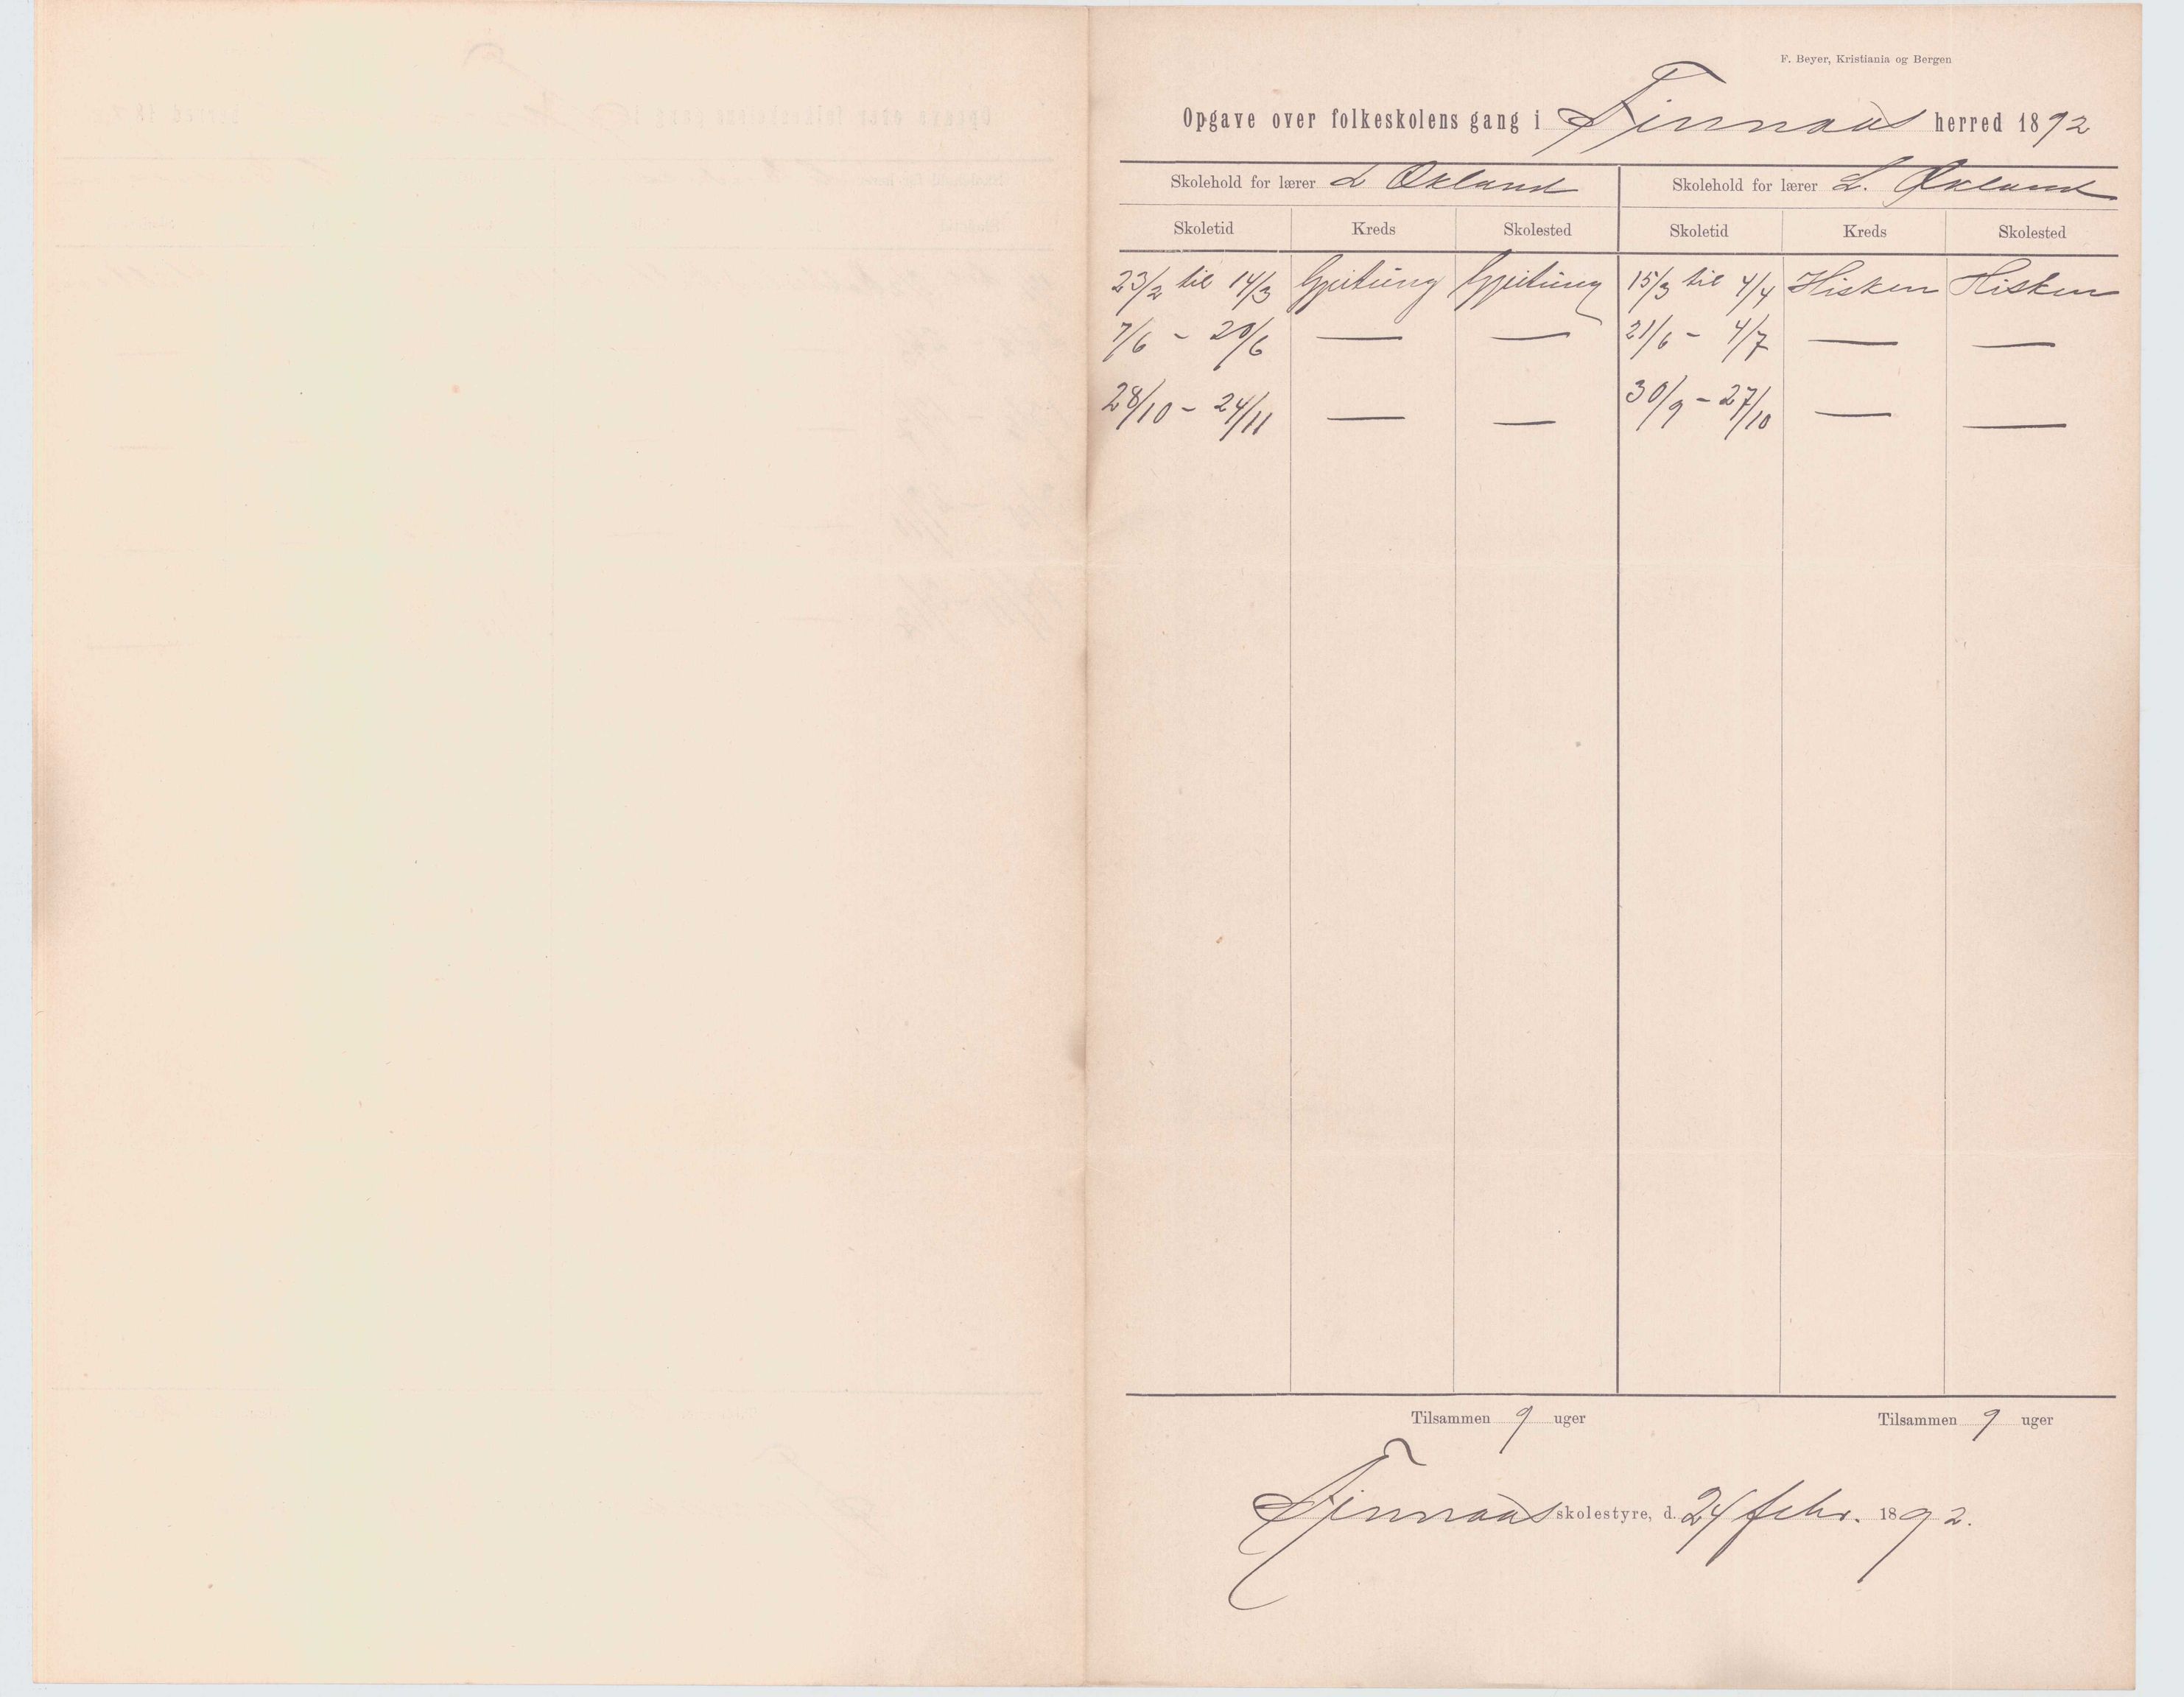 F. Beyer, Kristiania og Bergen
Opgave over folkeskolens gang i Finnaas herred 1892
Skolehold for lærer L Økland Skolehold for lærer L. Økland
Skoletid Kreds Skolested Skoletid Kreds Skolested
23/2 til 14/3 Gjeitung Gjeitung 15/3 til 4/4 Hisken Hisken
7/6 - 20/6 — — 21/6 - 4/7 — —
28/10 - 24/11 — — 30/9 - 27/10 — —
Tilsammen 9 uger Tilsammen 9 uger
Finnaas skolestyre, d. 24 febr. 1892.